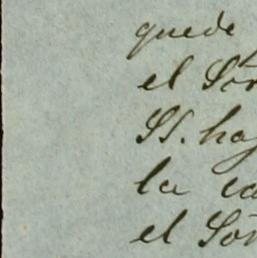 quede
el Sor
SS. hay
la ca
el Sor